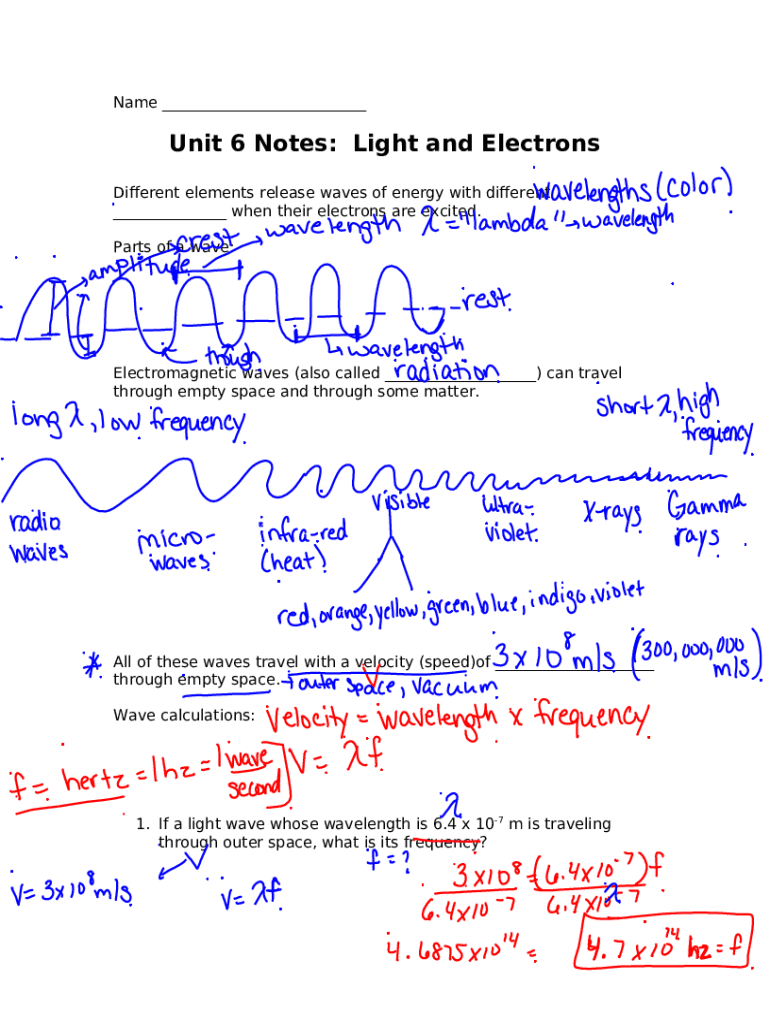 Name ___________________________
Unit 6 Notes:  Light and Electrons
Different elements release waves of energy with different wavelengths (color)
_______________ when their electrons are excited.
wavelength λ = "lambda" → wavelength
Parts of a wave:
crest
amplitude
rest
trough
↳ wavelength
Electromagnetic waves (also called radiation) can travel
through empty space and through some matter.
long λ, low frequency
short λ, high
frequency
radio
waves
micro-
waves
infra-red
(heat)
visible
ultra-
violet
X-rays
Gamma
rays
red, orange, yellow, green, blue, indigo, violet
* All of these waves travel with a velocity (speed)of 3 x 10⁸ m/s (300,000,000 m/s)
V
through empty space. → outer space, vacuum
Wave calculations: Velocity = wavelength x frequency
f = hertz = 1 hz = 1 wave
second
V = λf
λ
1. If a light wave whose wavelength is 6.4 x 10⁻⁷ m is traveling
through outer space, what is its frequency?
V
f = ?
V = 3x10⁸ m/s
V = λf
3x10⁸ = (6.4x10⁻⁷)f
6.4x10⁻⁷ 6.4x10⁻⁷
λ
4.6875x10¹⁴ =
4.7 x10¹⁴ hz = f